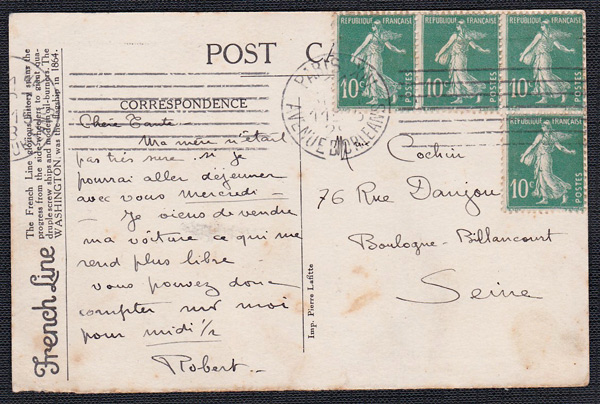 POST CA
CORRESPONDENCE
RÉPUBLIQUE FRANÇAISE
10c
POSTES
RÉPUBLIQUE FRANÇAISE
10c
POSTES
RÉPUBLIQUE FRANÇAISE
10c
POSTES
RÉPUBLIQUE FRANÇAISE
10c
POSTES
PARIS
AV. D'ORLEANS
Chère Tante
Ma mère n'était
pas très sure si je
pourrai aller déjeuner
avec vous mercredi -
- Je viens de vendre
ma voiture ce qui me
rend plus libre -
- vous pouvez donc
compter sur moi
pour midi 1/2
Robert -
Cochin
76 Rue Danjou
Boulogne-Billancourt
Seine
Imp. Pierre Lafitte
French Line
The French Line
progress from the side-wheelers to giant qua-
druple screw ships and modern oil-burners. The
WASHINGTON was the flagship in 1864.